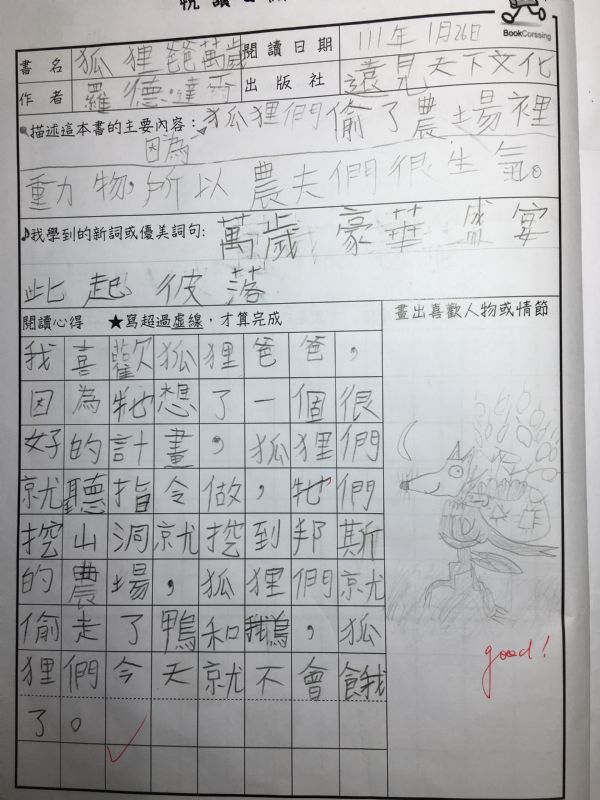 BookCorssing
書名 狐狸爸爸萬歲 閱讀日期 111年1月26日
作者 羅德.達爾 出版社 遠見天下文化
描述這本書的主要內容: 狐狸們偷了農場裡
因為
動物,所以農夫們很生氣。
我學到的新詞或優美詞句: 萬歲 豪華 盛宴
此起彼落
閱讀心得 ★寫超過虛線,才算完成
畫出喜歡人物或情節
我喜歡狐狸爸爸,
因為牠想了一個很
好的計畫,狐狸們
就聽指令做,牠們
挖山洞就挖到邦斯
的農場,狐狸們就
偷走了鴨和鵝,狐
狸們今天就不會餓
了。
good!